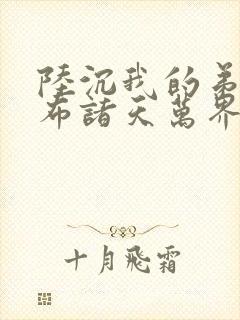 陸沉我的弟
布諸天萬界
十月飛霜